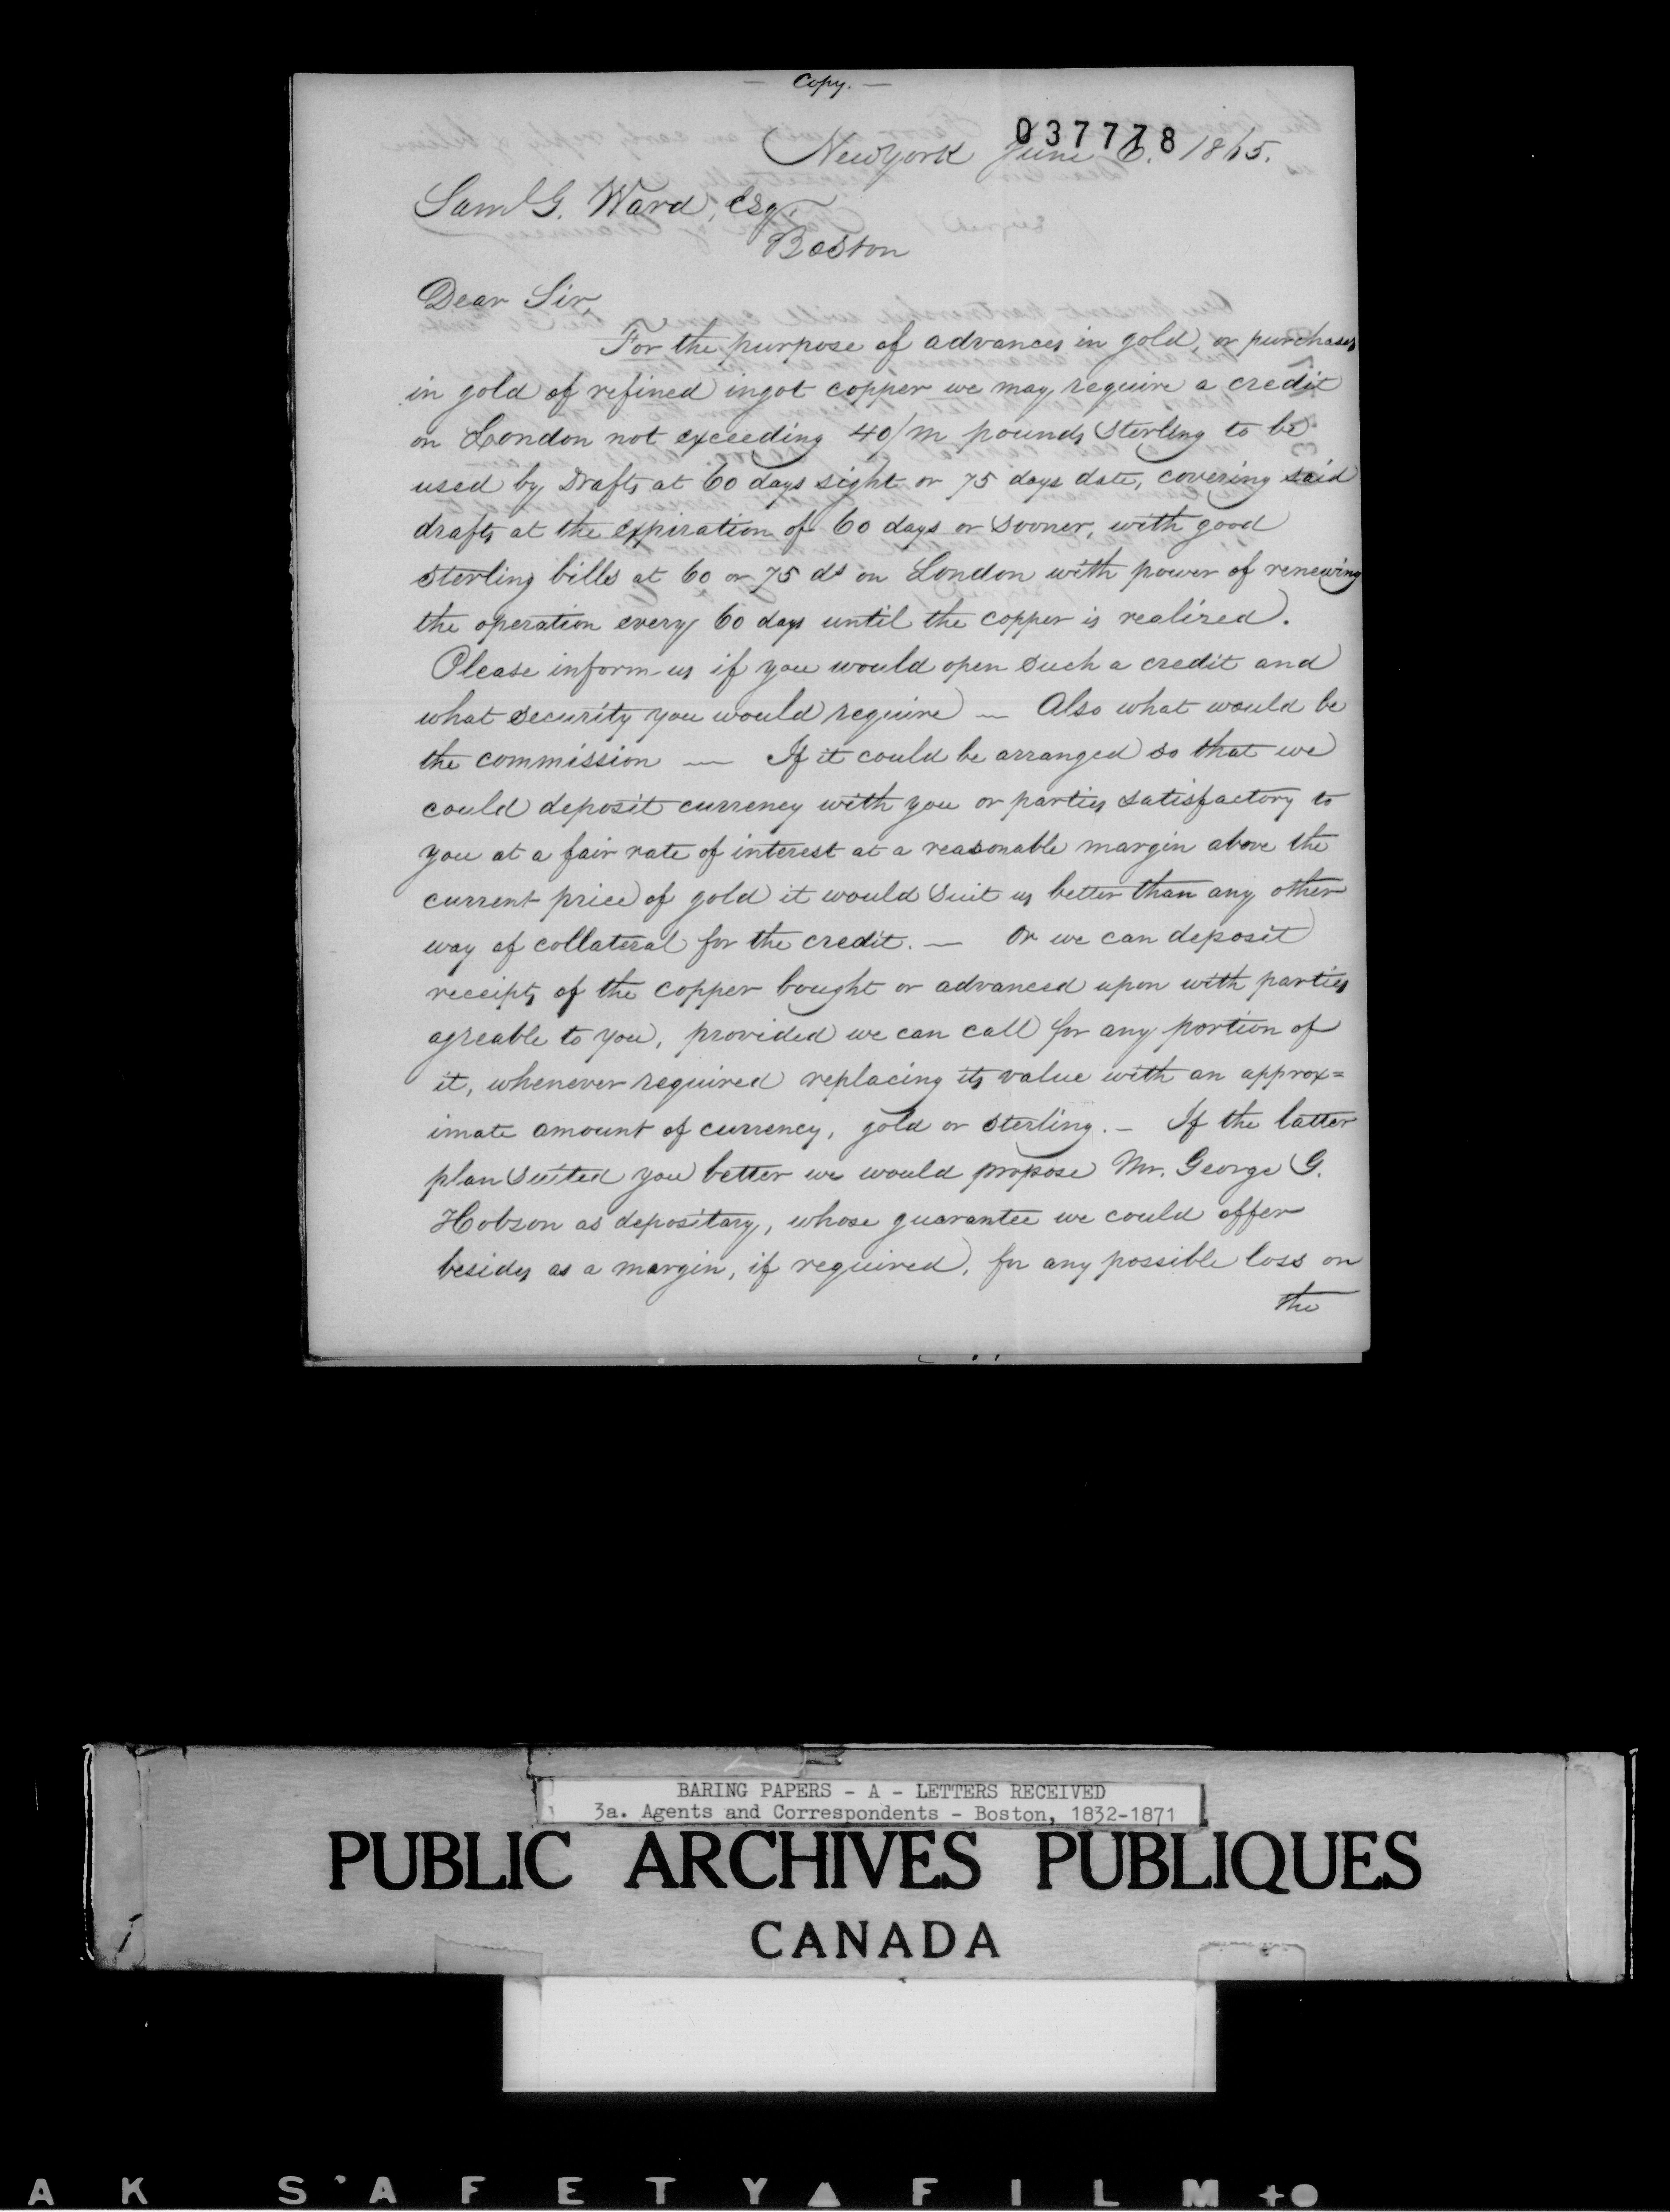 — Copy. —
037778
New York June 6. 1865.
Saml G. Ward, Esq.
Boston
Dear Sir,
For the purpose of advances in gold, or purchases
in gold of refined ingot copper we may require a credit
on London not exceeding 40/m pounds Sterling to be
used by Drafts at 60 days sight or 75 days date, covering said
drafts at the expiration of 60 days or sooner, with good
Sterling bills at 60 or 75 ds on London with power of renewing
the operation every 60 days until the copper is realized.
Please inform us if you would open such a credit and
what security you would require — Also what would be
the commission — If it could be arranged so that we
could deposit currency with you or parties satisfactory to
you at a fair rate of interest at a reasonable margin above the
current price of gold it would suit us better than any other
way of collateral for the credit. — Or we can deposit
receipts of the copper bought or advanced upon with parties
agreable to you, provided we can call for any portion of
it, whenever required replacing its value with an approx=
imate amount of currency, gold or sterling. — If the latter
plan suited you better we would propose Mr. George G.
Hobson as depositary, whose guarantee we could offer
besides as a margin, if required, for any possible loss on
the
BARING PAPERS - A - LETTERS RECEIVED
3a. Agents and Correspondents - Boston, 1832-1871
PUBLIC ARCHIVES PUBLIQUES
CANADA
AK SAFETY FILM